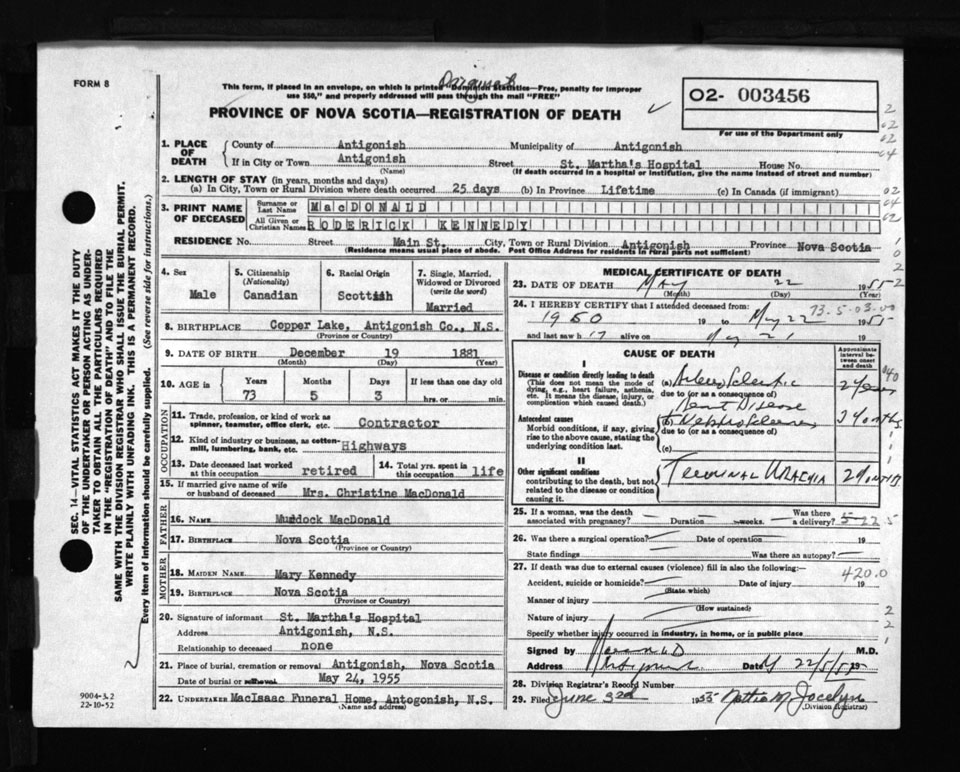 FORM 8
This form, if placed in an envelope, on which is printed "Dominion Statistics—Free, penalty for improper
use $50," and properly addressed will pass through the mail "FREE"
PROVINCE OF NOVA SCOTIA—REGISTRATION OF DEATH
O2- 003456
For use of the Department only
SEC. 14—VITAL STATISTICS ACT MAKES IT THE DUTY
OF THE UNDERTAKER OR PERSON ACTING AS UNDER-
TAKER TO OBTAIN ALL THE PARTICULARS REQUIRED
IN THE "REGISTRATION OF DEATH" AND TO FILE THE
SAME WITH THE DIVISION REGISTRAR WHO SHALL ISSUE THE BURIAL PERMIT.
WRITE PLAINLY WITH UNFADING INK. THIS IS A PERMANENT RECORD.
Every item of information should be carefully supplied. (See reverse side for instructions.)
1. PLACE OF DEATH
County of Antigonish Municipality of Antigonish
If in City or Town Antigonish Street St. Martha's Hospital House No.
(Name) (If death occurred in a hospital or institution, give the name instead of street and number)
2. LENGTH OF STAY (in years, months and days)
(a) In City, Town or Rural Division where death occurred 25 days (b) In Province Lifetime (c) In Canada (if immigrant)
3. PRINT NAME OF DECEASED
Surname or Last Name MacDONALD
All Given or Christian Names RODERICK KENNEDY
RESIDENCE No. Street Main St. City, Town or Rural Division Antigonish Province Nova Scotia
(Residence means usual place of abode. Post Office Address for residents in rural parts not sufficient)
4. Sex
Male
5. Citizenship
(Nationality)
Canadian
6. Racial Origin
Scottish
7. Single, Married, Widowed or Divorced
(write the word)
Married
8. BIRTHPLACE Copper Lake, Antigonish Co., N.S.
(Province or Country)
9. DATE OF BIRTH December 19 1881
(Month) (Day) (Year)
10. AGE IN
Years Months Days If less than one day old
73 5 3 hrs. or min.
OCCUPATION
11. Trade, profession, or kind of work as
spinner, teamster, office clerk, etc. Contractor
12. Kind of industry or business, as cotten-
mill, lumbering, bank, etc. Highways
13. Date deceased last worked
at this occupation retired
14. Total yrs. spent in
this occupation life
15. If married give name of wife
or husband of deceased Mrs. Christine MacDonald
FATHER
16. NAME Murdock MacDonald
17. BIRTHPLACE Nova Scotia
(Province or Country)
MOTHER
18. MAIDEN NAME Mary Kennedy
19. BIRTHPLACE Nova Scotia
(Province or Country)
20. Signature of informant St. Martha's Hospital
Address Antigonish, N.S.
Relationship to deceased none
21. Place of burial, cremation or removal Antigonish, Nova Scotia
Date of burial or removal May 24, 1955
22. UNDERTAKER MacIsaac Funeral Home, Antogonish, N.S.
(Name and address)
9004-3.2
22-10-52
MEDICAL CERTIFICATE OF DEATH
23. DATE OF DEATH May 22 1955
(Month) (Day) (Year)
24. I HEREBY CERTIFY that I attended deceased from:
73-5-03-00
1950 19 to May 22 1955
and last saw h alive on May 21 19
CAUSE OF DEATH
Approximate interval between onset and death
I
Disease or condition directly leading to death
(This does not mean the mode of dying, e.g., heart failure, asthenia, etc. It means the disease, injury, or complication which caused death.)
(a) Arteriosclerotic
due to (or as a consequence of)
Heart Disease
2 Years
Antecedent causes
Morbid conditions, if any, giving rise to the above cause, stating the underlying condition last.
(b) Nephrosclerosis
due to (or as a consequence of)
(c)
3 Months
II
Other significant conditions
contributing to the death, but not related to the disease or condition causing it.
Terminal Uraemia
25. If a woman, was the death
associated with pregnancy? Duration weeks. Was there a delivery?
26. Was there a surgical operation? Date of operation 19
State findings Was there an autopsy?
27. If death was due to external causes (violence) fill in also the following:
420.0
Accident, suicide or homicide? Date of injury 19
(State which)
Manner of injury
(How sustained)
Nature of injury
Specify whether injury occurred in industry, in home, or in public place
Signed by M.D.
Address Date 22/5/55
28. Division Registrar's Record Number
29. Filed June 3rd 1955 M. Jocelyn
(Division Registrar)